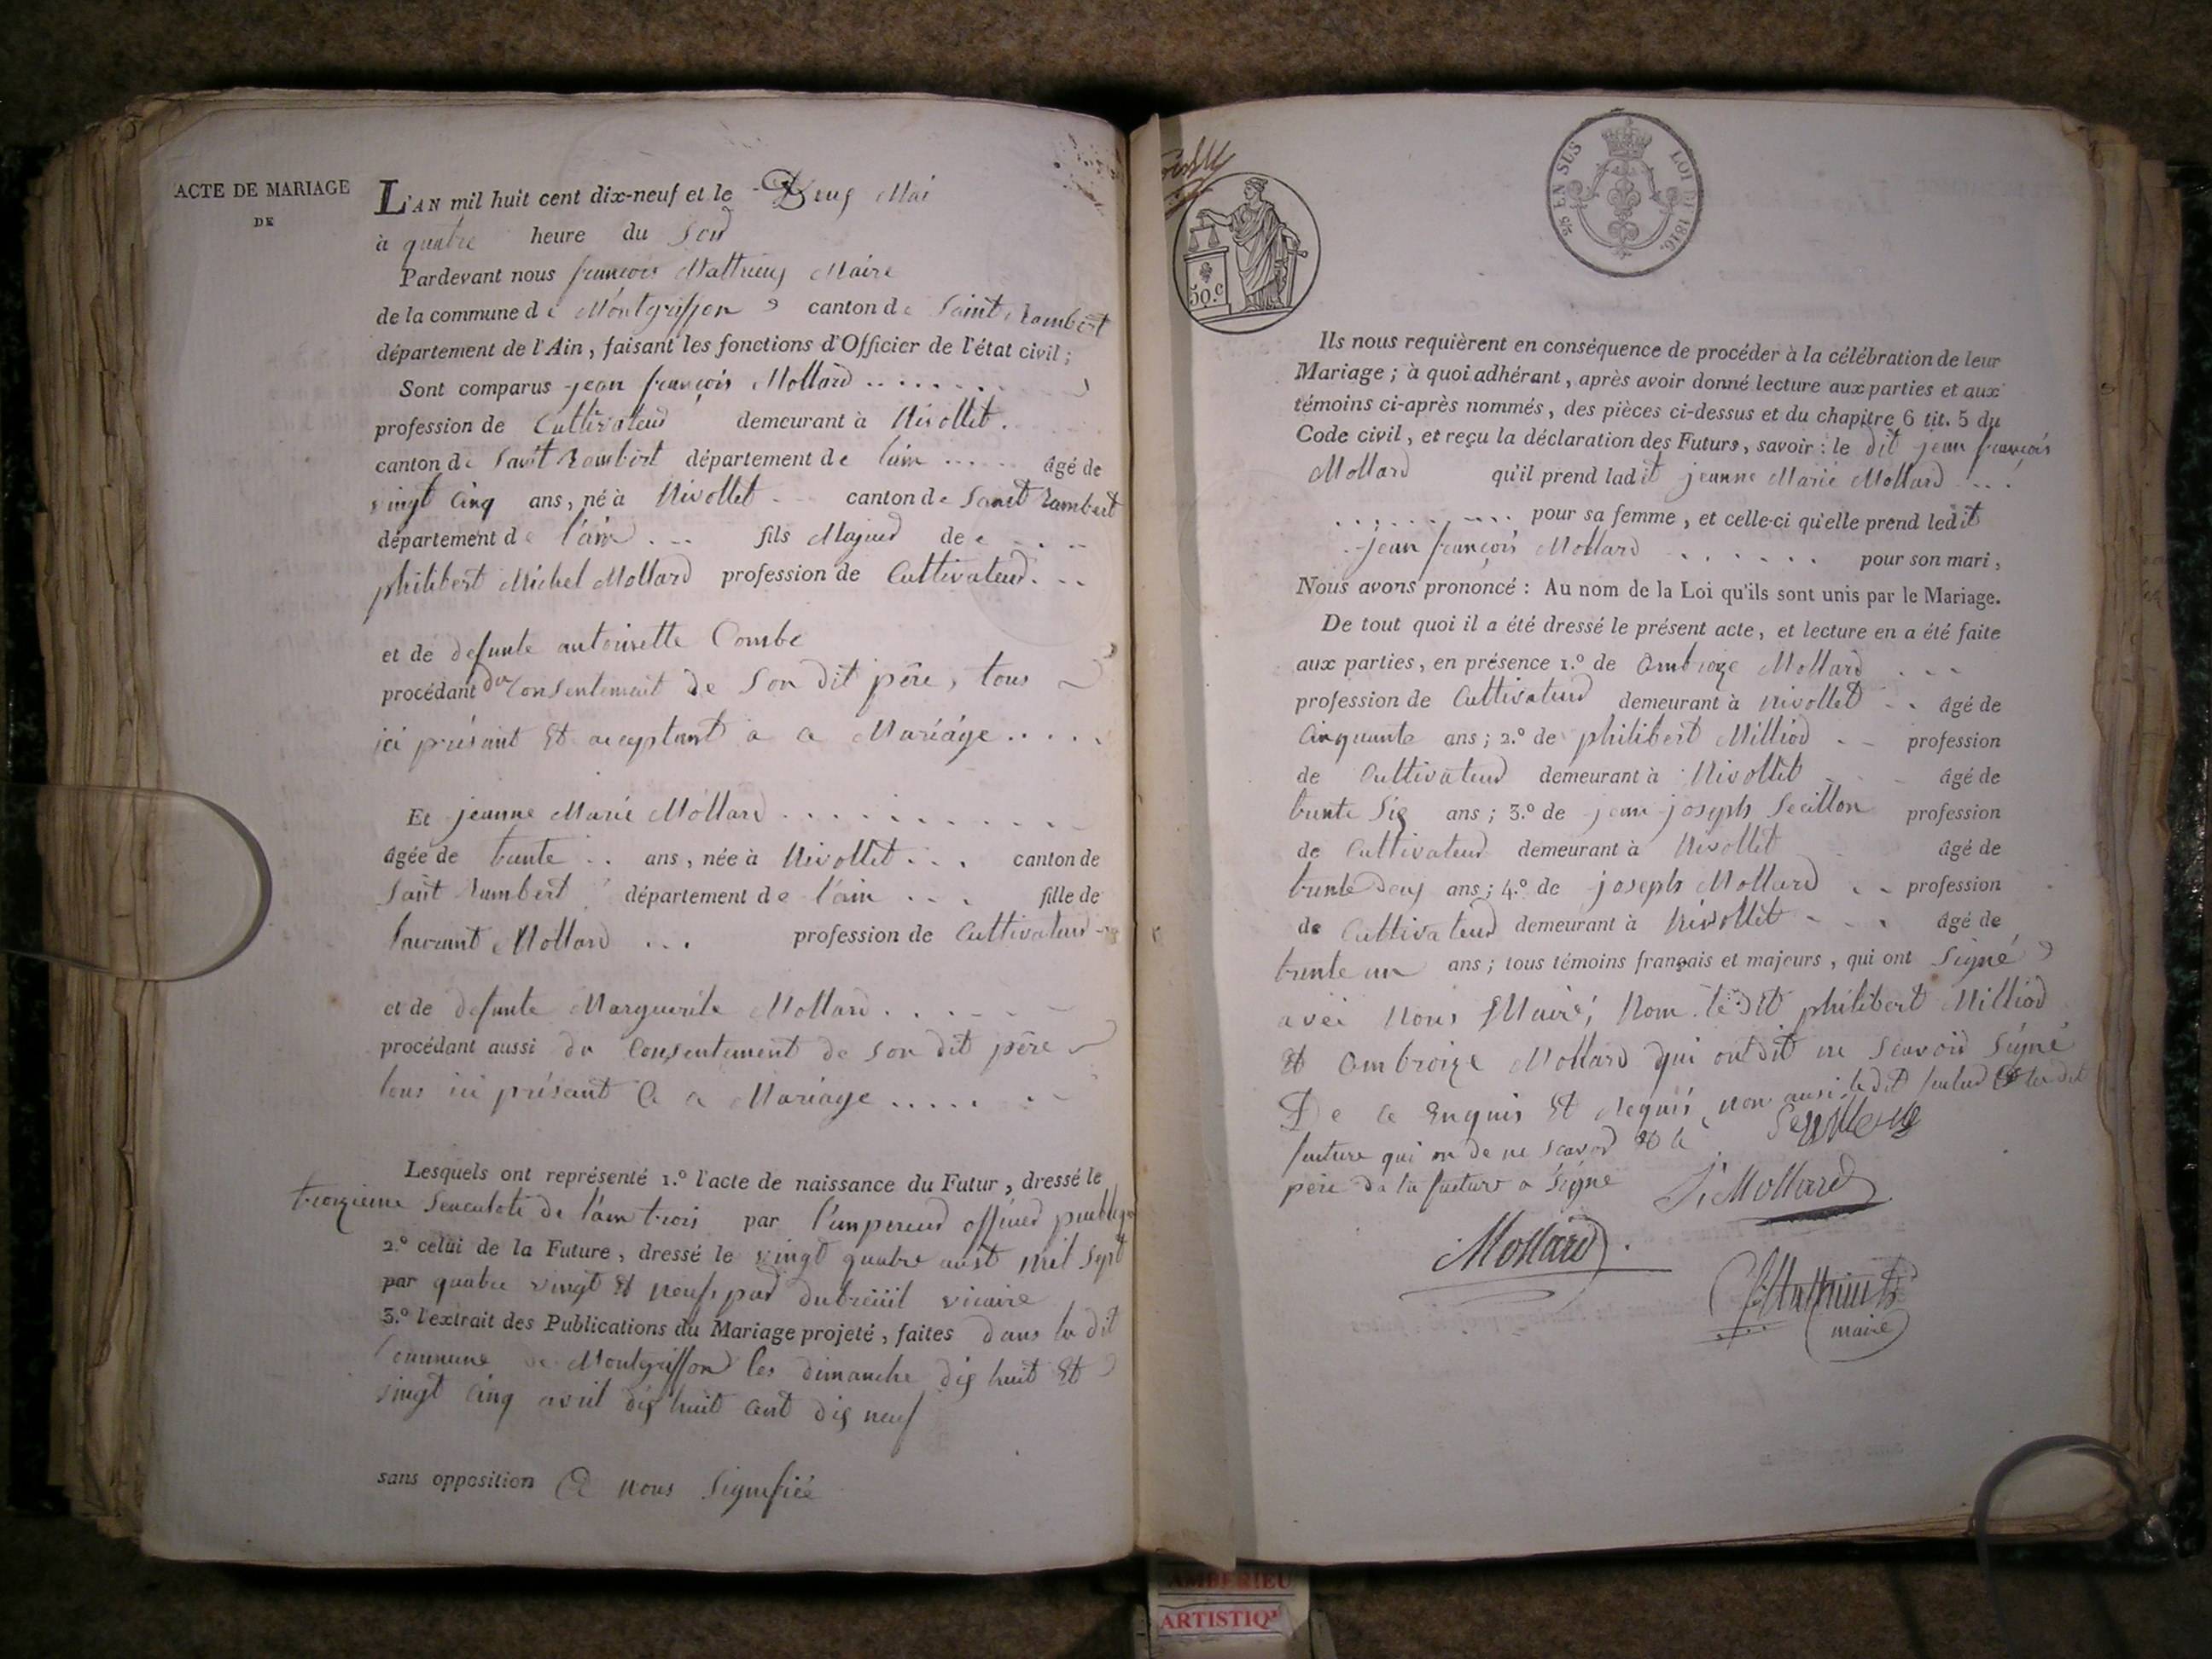 ACTE DE MARIAGE
DE
L'AN mil huit cent dix-neuf et le Deux Mai
à quatre heure du Soir
Pardevant nous françois Matthieux Maire
de la commune de Montgriffon canton de Saint Rambert
département de l'Ain, faisant les fonctions d'Officier de l'état civil;
Sont comparus jean françois Mollard
profession de Cultivateur demeurant à Nivollet.
canton de Saint Rambert département de l'ain .... âgé de
vingt cinq ans, né à Nivollet canton de Saint Rambert
département de l'ain ... fils Majeur de
philibert Michel Mollard profession de Cultivateur
et de defunte antoinette Combe
procédant du Consentement de Son dit père, tous
ici présant et aceptant a ce Mariâge .....
Et jeanne Marie Mollard ..........
âgée de trente .. ans, née à Nivollet ... canton de
Saint Rambert département de l'ain ... fille de
Laurant Mollard ... profession de Cultivateur
et de defunte Marguerite Mollard ......
procédant aussi du Consentement de Son dit père
tous ici présant a ce Mariage .....
Lesquels ont représenté 1.º l'acte de naissance du Futur, dressé le
troizieme de l'an trois par l'empereur officier publique
2.º celui de la Future, dressé le vingt quatre aust mil sept
par quatre vingt et neuf, par dubreüil vicaire
3.º l'extrait des Publications du Mariage projeté, faites dans la dit
Commune de Montgriffon les dimanche dix huit et
vingt cinq avril dix huit cent dix neuf
sans opposition a nous Signifiée
5/8 EN SUS
LOI DE 1816.
50.c
Ils nous requièrent en conséquence de procéder à la célébration de leur
Mariage; à quoi adhérant, après avoir donné lecture aux parties et aux
témoins ci-après nommés, des pièces ci-dessus et du chapitre 6 tit. 5 du
Code civil, et reçu la déclaration des Futurs, savoir: le dit jean françois
Mollard qu'il prend ladit jeanne Marie Mollard ...
pour sa femme, et celle-ci qu'elle prend ledit
jean françois Mollard ...... pour son mari,
Nous avons prononcé: Au nom de la Loi qu'ils sont unis par le Mariage.
De tout quoi il a été dressé le présent acte, et lecture en a été faite
aux parties, en présence 1.º de Ambroize Mollard ...
profession de Cultivateur demeurant à Nivollet .. âgé de
Cinquante ans; 2.º de philibert Milliod profession
de Cultivateur demeurant à Nivollet âgé de
trente Six ans; 3.º de jean joseph Secillon profession
de Cultivateur demeurant à Nivollet âgé de
trente deux ans; 4.º de joseph Mollard profession
de Cultivateur demeurant à Nivollet âgé de
trente un ans; tous témoins français et majeurs, qui ont Signé
avec Nous Maire, Nom le dit philibert Milliod
et Ambroize Mollard qui ont dit ne Scavoir Signé
De ce Enquis et Requis, non ausi le dit futur et la dit
future qui on de ne Scavoir et le
père da la future a Signé
J. Mollard
Mollard
maire
AMBERIEU
ARTISTIQ